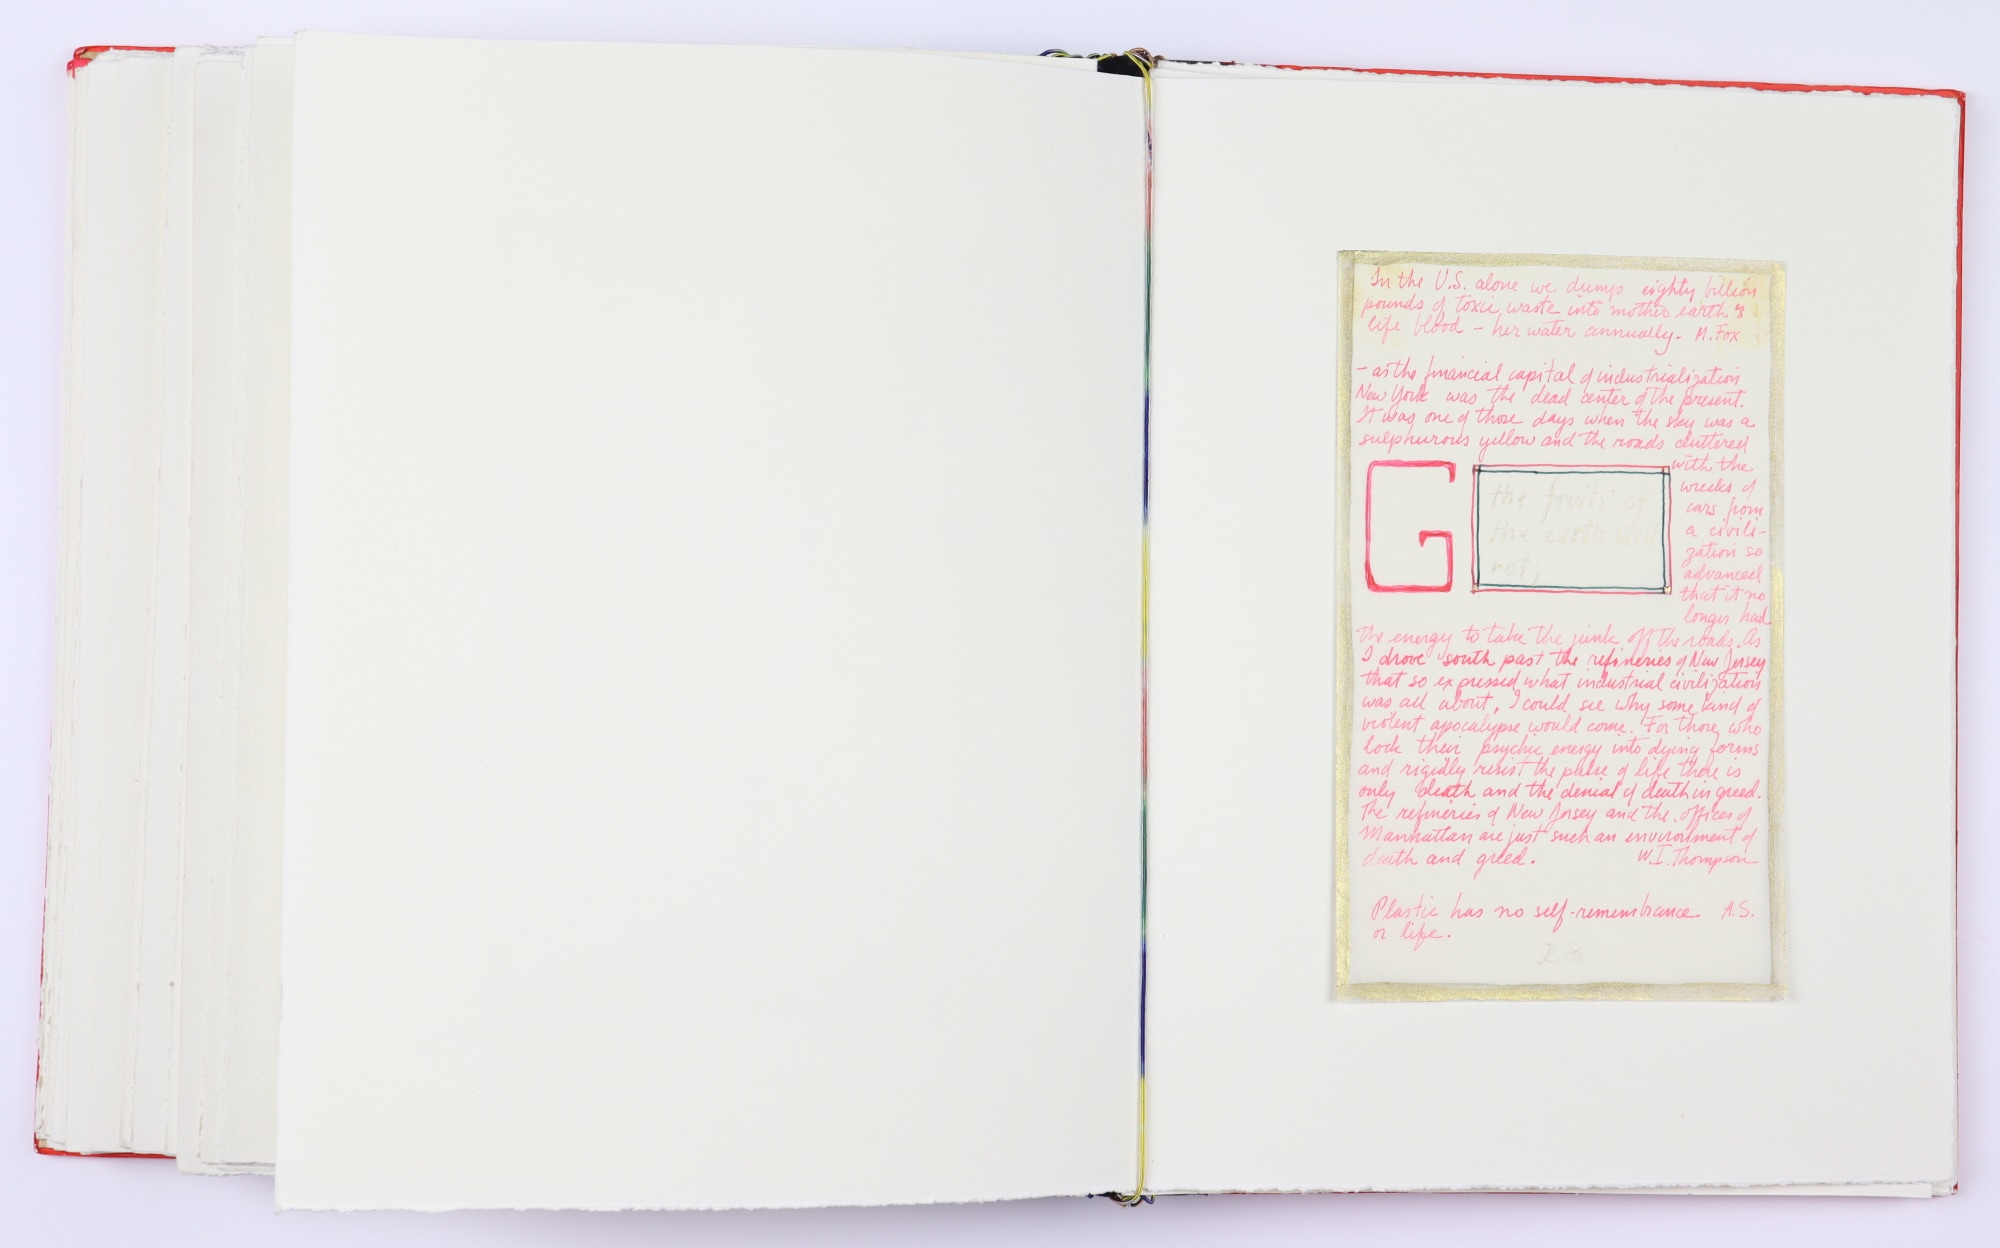 In the U.S. alone we dump eighty billion
pounds of toxic waste into mother earth's
life blood – her water annually. M. Fox
– as the financial capital of industrialization
New York was the dead center of the present.
It was one of those days when the sky was a
sulphurous yellow and the roads cluttered
with the
wrecks of
cars from
a civili-
zation so
advanced
that it no
longer had
G
the fruits of
the earth will
rot,
the energy to take the junk off the roads. As
I drove south past the refineries of New Jersey
that so expressed what industrial civilization
was all about, I could see why some kind of
violent apocalypse would come. For those who
lock their psychic energy into dying forms
and rigidly resist the pulse of life there is
only death and the denial of death in greed.
The refineries of New Jersey and the offices of
Manhattan are just such an environment of
death and greed. W.I. Thompson
Plastic has no self-remembrance A.S.
or life.